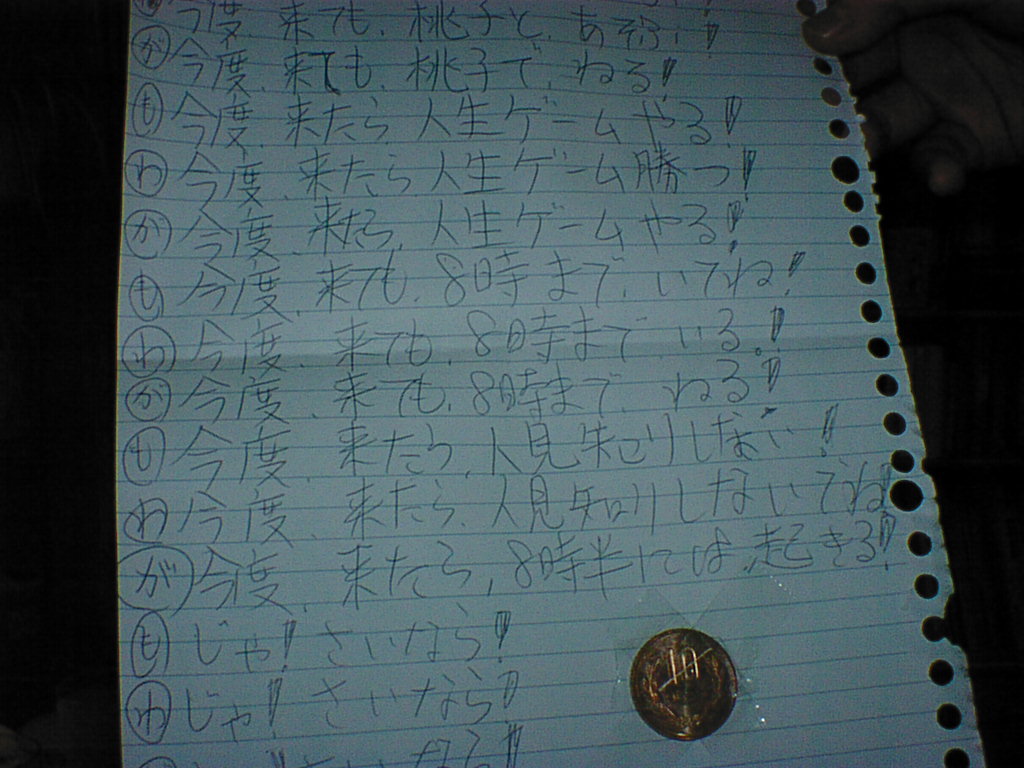 今度、来ても、桃子と、あそぶ!
が 今度、来ても、桃子で、ねる!
も 今度、来たら、人生ゲームやる!
わ 今度、来たら、人生ゲーム勝つ!
が 今度、来たら、人生ゲームやる!
も 今度、来ても、8時まで、いてね!
わ 今度、来ても、8時まで、いる。!
が 今度、来ても、8時まで、ねる!
も 今度、来たら、人見知りしない!
わ 今度、来たら、人見知りしないでね!
が 今度、来たら、8時半には、起きる!
も じゃ!さいなら!
わ じゃ!さいなら!
さいなら!
10